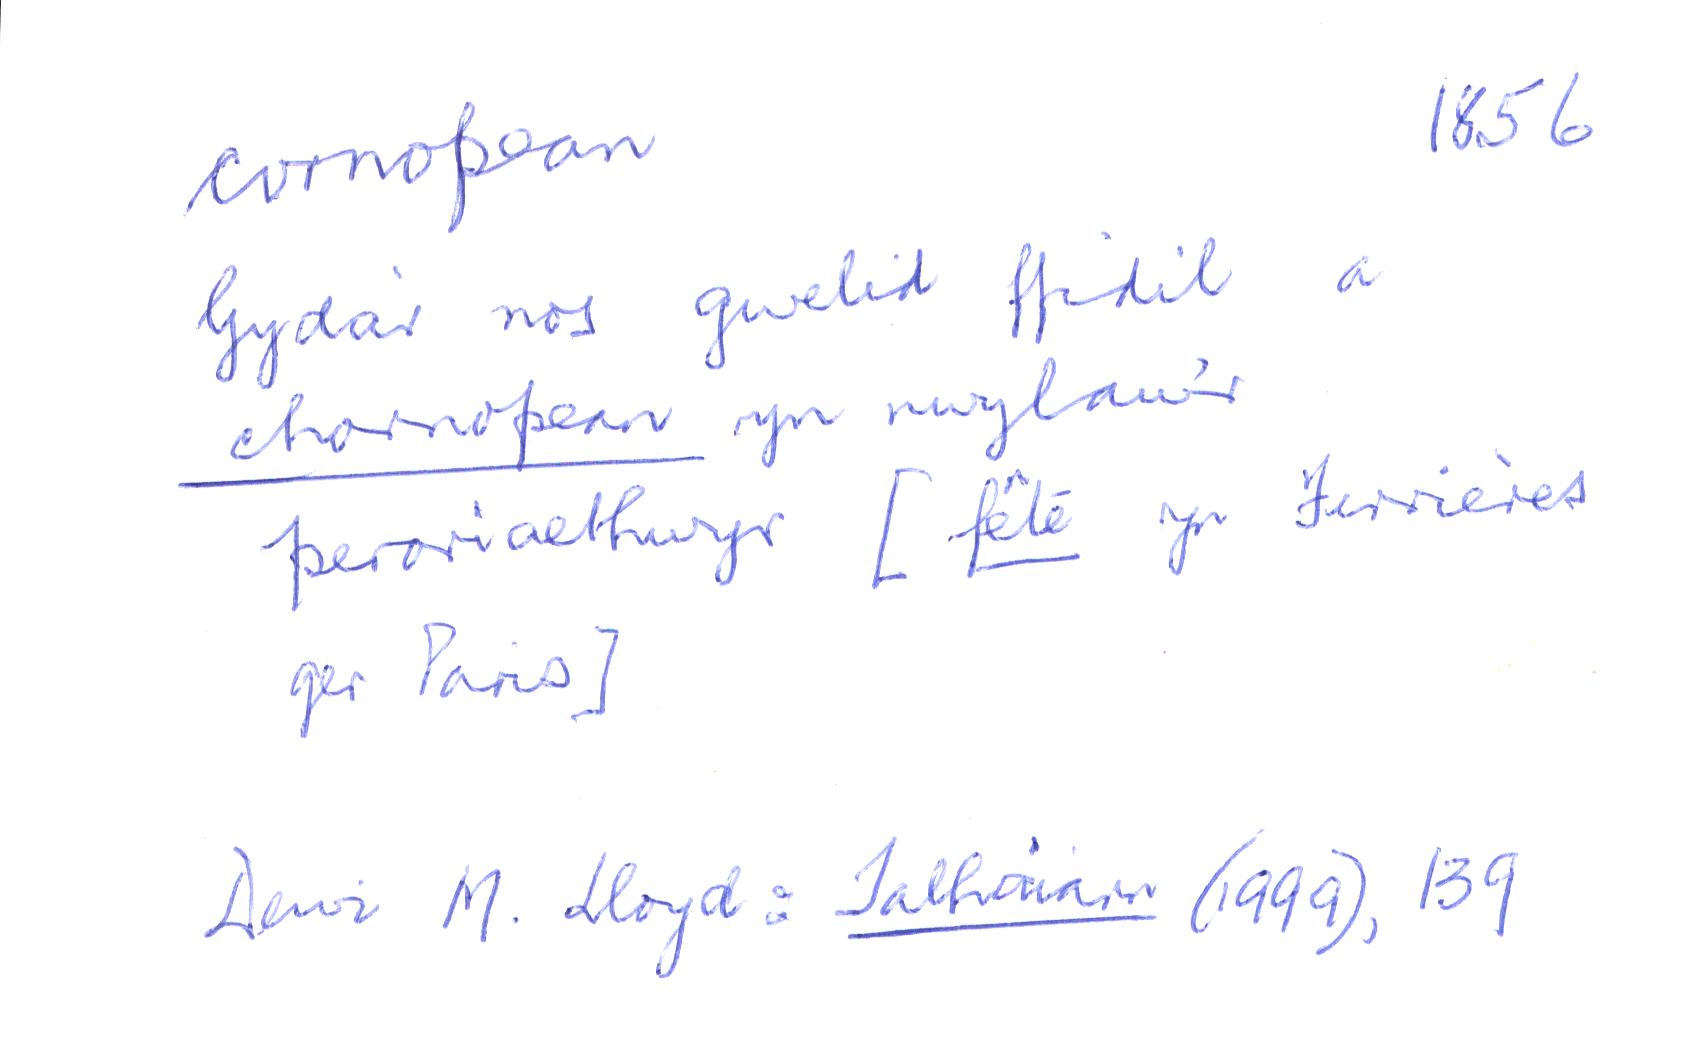 cornopean 1856
Gyda'r nos gwelid ffidil a
chornopean yn nwylaw'r
peroriaethwyr [fête yn Ferrières
ger Paris]
Dewi M. Lloyd: Talhaiarn (1999), 139